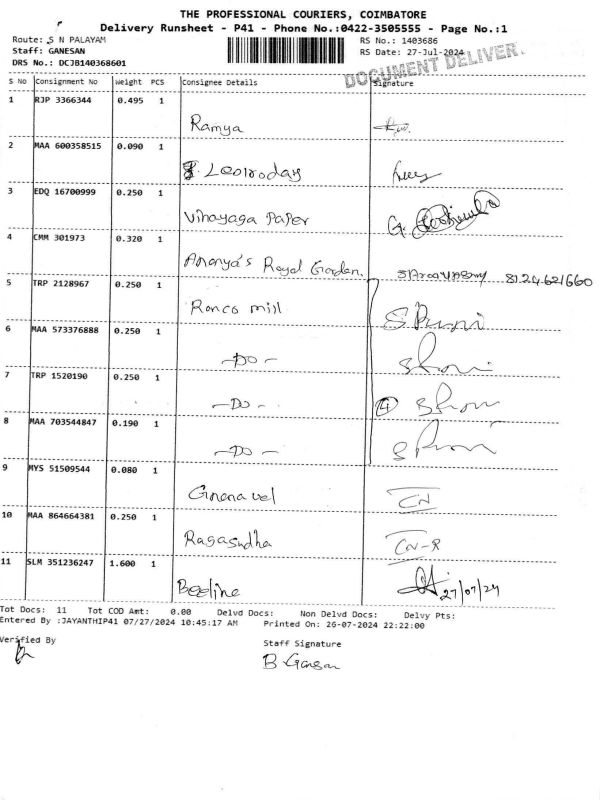 THE PROFESSIONAL COURIERS, COIMBATORE
Delivery Runsheet - P41 - Phone No.:0422-3505555 - Page No.:1
Route: S N PALAYAM RS No.: 1403686
Staff: GANESAN RS Date: 27-Jul-2024
DRS No.: DCJB140368601 DOCUMENT DELIVER
S No Consignment No Weight PCS Consignee Details Signature
1 RJP 3366344 0.495 1
Ramya
2 MAA 600358515 0.090 1
3 EDQ 16700999 0.250 1
Vinayaga Paper G.
4 CMM 301973 0.320 1
Ananya's Royal Garden. 8124621660
5 TRP 2128967 0.250 1
Ronco mill
6 MAA 573376888 0.250 1
-DO-
7 TRP 1520190 0.250 1
-DO- 4
8 MAA 703544847 0.190 1
-DO-
9 MYS 51509544 0.080 1
Gnanavel CN
10 MAA 864664381 0.250 1
Ragasudha CN-R
11 SLM 351236247 1.600 1
Beeline 27/07/24
Tot Docs: 11 Tot COD Amt: 0.00 Delvd Docs: Non Delvd Docs: Delvy Pts:
Entered By :JAYANTHIP41 07/27/2024 10:45:17 AM Printed On: 26-07-2024 22:22:00
Verified By Staff Signature
B Gansan